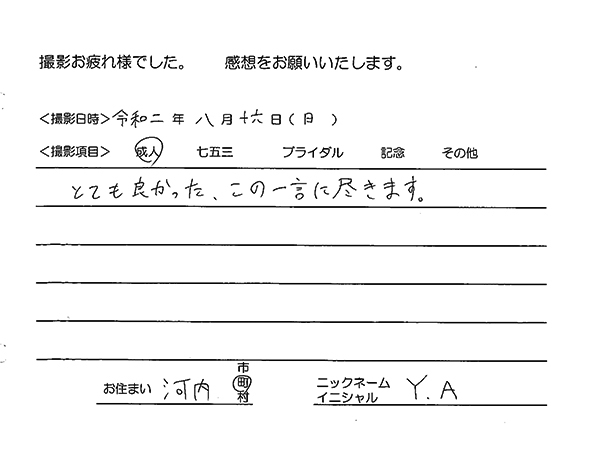 撮影お疲れ様でした。　感想をお願いいたします。
＜撮影日時＞令和二年八月十六日(日)
＜撮影項目＞　成人　七五三　ブライダル　記念　その他
とても良かった、この一言に尽きます。
お住まい　河内　市町村　ニックネーム イニシャル　Y.A